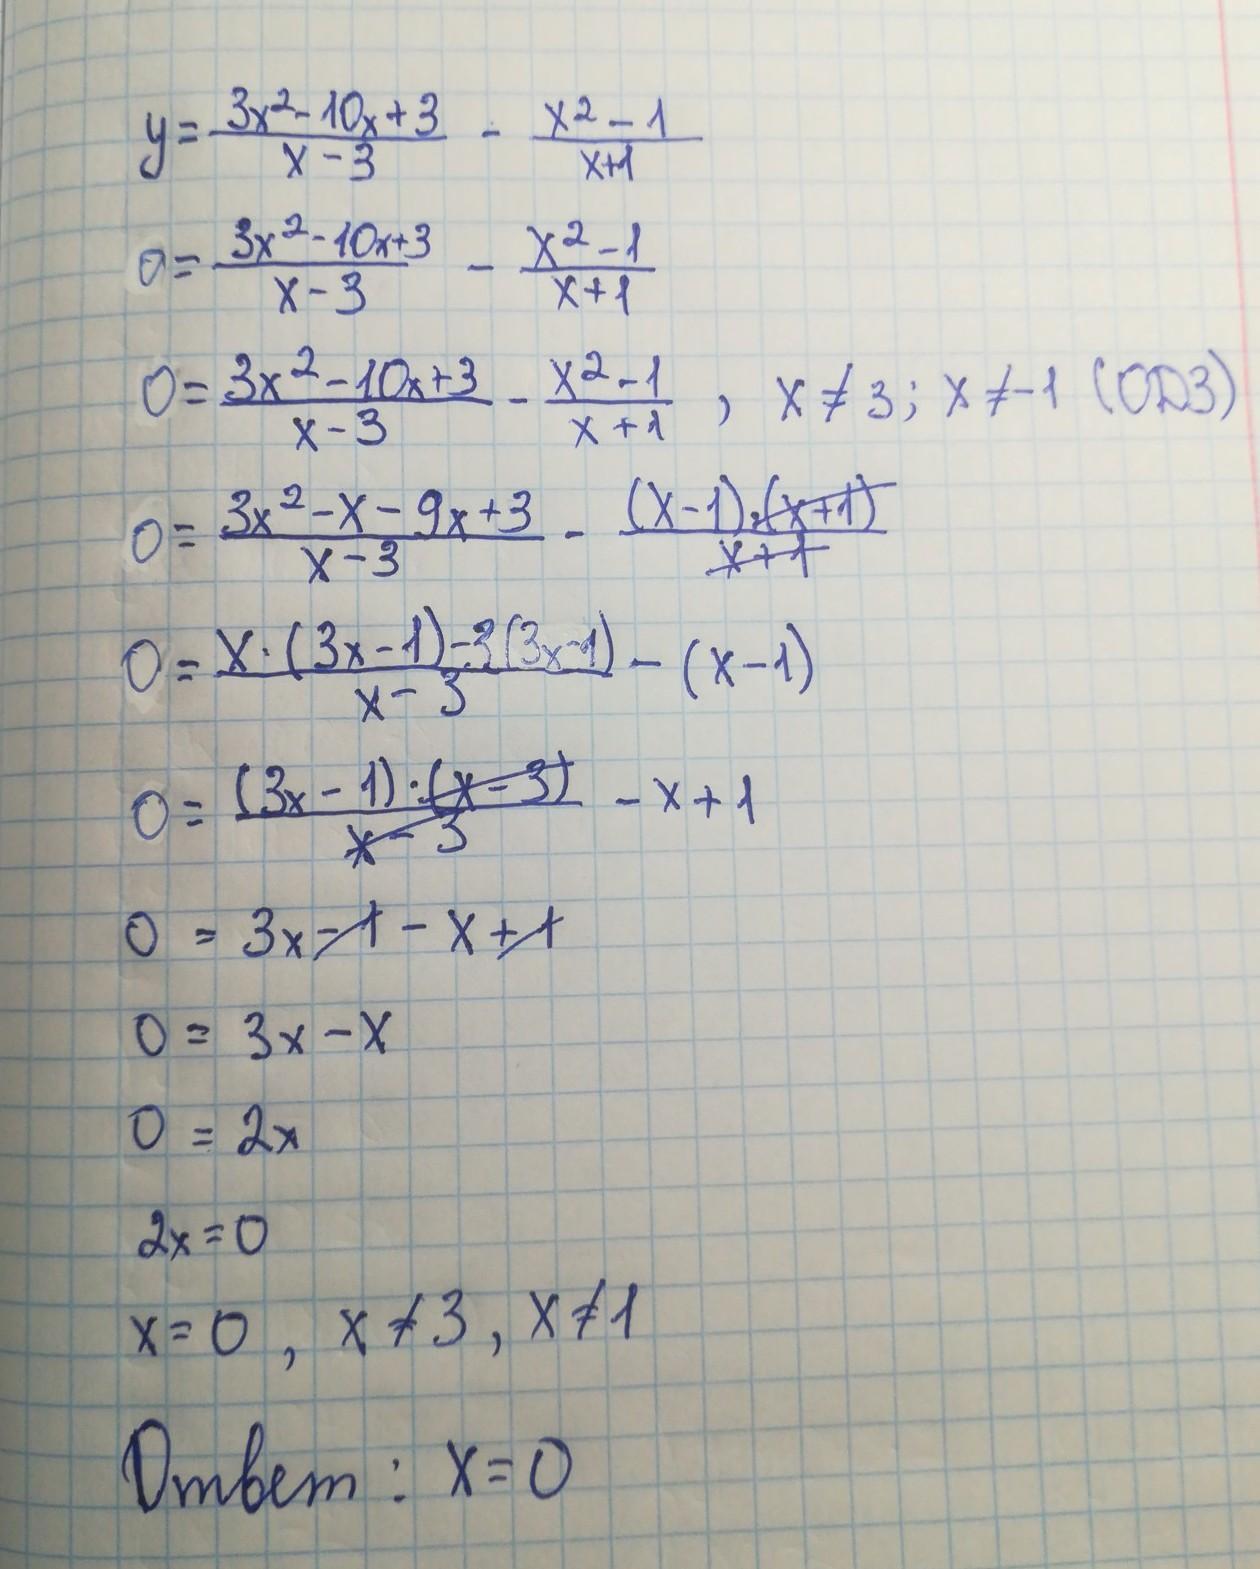 y = (3x² - 10x + 3)/(x - 3) - (x² - 1)/(x + 1)
0 = (3x² - 10x + 3)/(x - 3) - (x² - 1)/(x + 1)
0 = (3x² - 10x + 3)/(x - 3) - (x² - 1)/(x + 1) , x ≠ 3; x ≠ -1 (ОДЗ)
0 = (3x² - x - 9x + 3)/(x - 3) - ((x - 1)·(x + 1))/(x + 1)
0 = (x·(3x - 1) - 3(3x - 1))/(x - 3) - (x - 1)
0 = ((3x - 1)·(x - 3))/(x - 3) - x + 1
0 = 3x - 1 - x + 1
0 = 3x - x
0 = 2x
2x = 0
x = 0 , x ≠ 3 , x ≠ 1
Ответ : x = 0